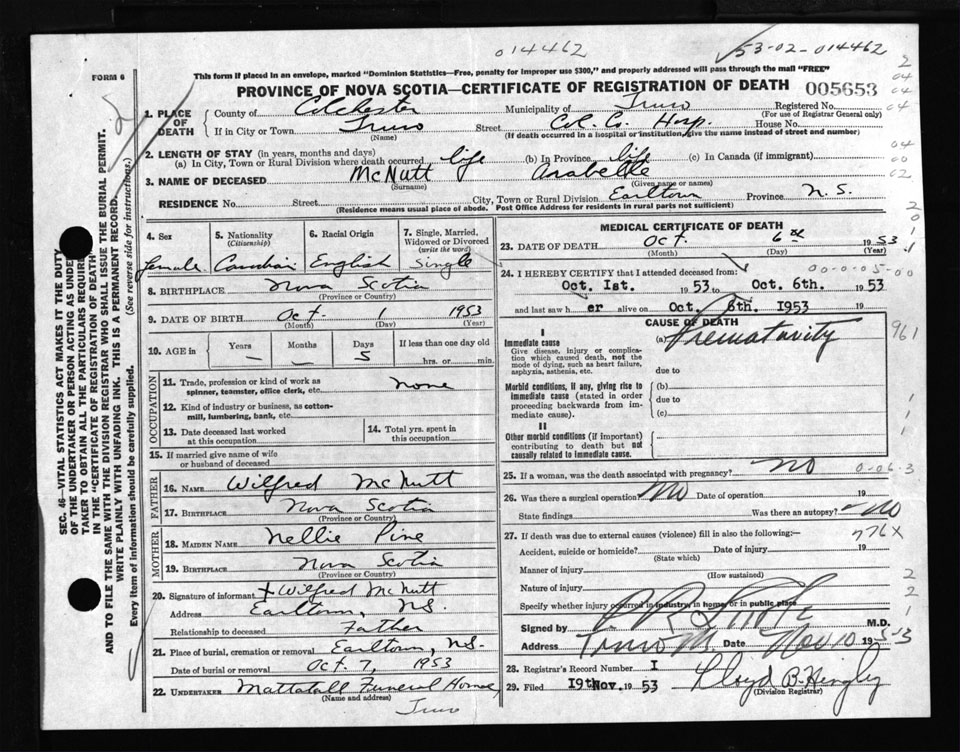 014462
53-02-014462
FORM 6
This form if placed in an envelope, marked "Dominion Statistics—Free, penalty for improper use $300," and properly addressed will pass through the mail "FREE"
PROVINCE OF NOVA SCOTIA—CERTIFICATE OF REGISTRATION OF DEATH 005653
1. PLACE OF DEATH County of Colchester Municipality of Truro Registered No.
(For use of Registrar General only)
If in City or Town Truro Street Col. Co. Hosp. House No.
(Name) (If death occurred in a hospital or institution, give the name instead of street and number)
2. LENGTH OF STAY (in years, months and days)
(a) In City, Town or Rural Division where death occurred life (b) In Province life (c) In Canada (if immigrant)
3. NAME OF DECEASED McNutt Arabelle
(Surname) (Given name or names)
RESIDENCE No. Street City, Town or Rural Division Earltown Province N.S.
(Residence means usual place of abode. Post Office Address for residents in rural parts not sufficient)
4. Sex female
5. Nationality (Citizenship) Canadian
6. Racial Origin English
7. Single, Married, Widowed or Divorced (write the word) Single
8. BIRTHPLACE Nova Scotia
(Province or Country)
9. DATE OF BIRTH Oct. 1 1953
(Month) (Day) (Year)
10. AGE in Years — Months — Days 5 If less than one day old
hrs. or min.
OCCUPATION
11. Trade, profession or kind of work as none
spinner, teamster, office clerk, etc.
12. Kind of industry or business, as cotton-
mill, lumbering, bank, etc.
13. Date deceased last worked
at this occupation
14. Total yrs. spent in
this occupation
15. If married give name of wife
or husband of deceased
FATHER
16. NAME Wilfred McNutt
17. BIRTHPLACE Nova Scotia
(Province or Country)
MOTHER
18. MAIDEN NAME Nellie Pine
19. BIRTHPLACE Nova Scotia
(Province or Country)
20. Signature of informant + Wilfred McNutt
Address Earltown, N.S.
Relationship to deceased Father
21. Place of burial, cremation or removal Earltown, N.S.
Date of burial or removal Oct. 7, 1953
22. UNDERTAKER Mattatall Funeral Home,
(Name and address)
Truro
MEDICAL CERTIFICATE OF DEATH
23. DATE OF DEATH Oct. 6th 1953
(Month) (Day) (Year)
24. I HEREBY CERTIFY that I attended deceased from: 00-0-05-00
Oct. 1st. 1953 to Oct. 6th. 1953
and last saw her alive on Oct. 6th. 1953
CAUSE OF DEATH
I
Immediate cause (a) Prematurity 961
Give disease, injury or complica-
tion which caused death, not the
mode of dying, such as heart failure,
asphyxia, asthenia, etc.
due to
Morbid conditions, if any, giving rise to
immediate cause (stated in order
proceeding backwards from im-
mediate cause).
(b)
due to
(c)
II
Other morbid conditions (if important)
contributing to death but not
causally related to immediate cause.
25. If a woman, was the death associated with pregnancy? NO 0-06-3
26. Was there a surgical operation? NO Date of operation 19
State findings Was there an autopsy? NO
27. If death was due to external causes (violence) fill in also the following:— 776X
Accident, suicide or homicide? Date of injury 19
(State which)
Manner of injury
(How sustained)
Nature of injury
Specify whether injury occurred in industry in home or in public place
Signed by M.D.
Address Truro Date Nov 10 1953
28. Registrar's Record Number I
29. Filed 19th Nov. 1953 Lloyd B. Hingley
(Division Registrar)
SEC. 46—VITAL STATISTICS ACT MAKES IT THE DUTY
OF THE UNDERTAKER OR PERSON ACTING AS UNDER
TAKER TO OBTAIN ALL THE PARTICULARS REQUIR
IN THE "CERTIFICATE OF REGISTRATION OF DEATH"
AND TO FILE THE SAME WITH THE DIVISION REGISTRAR WHO SHALL ISSUE THE BURIAL PERMIT.
WRITE PLAINLY WITH UNFADING INK. THIS IS A PERMANENT RECORD.
Every item of information should be carefully supplied. (See reverse side for instructions.)